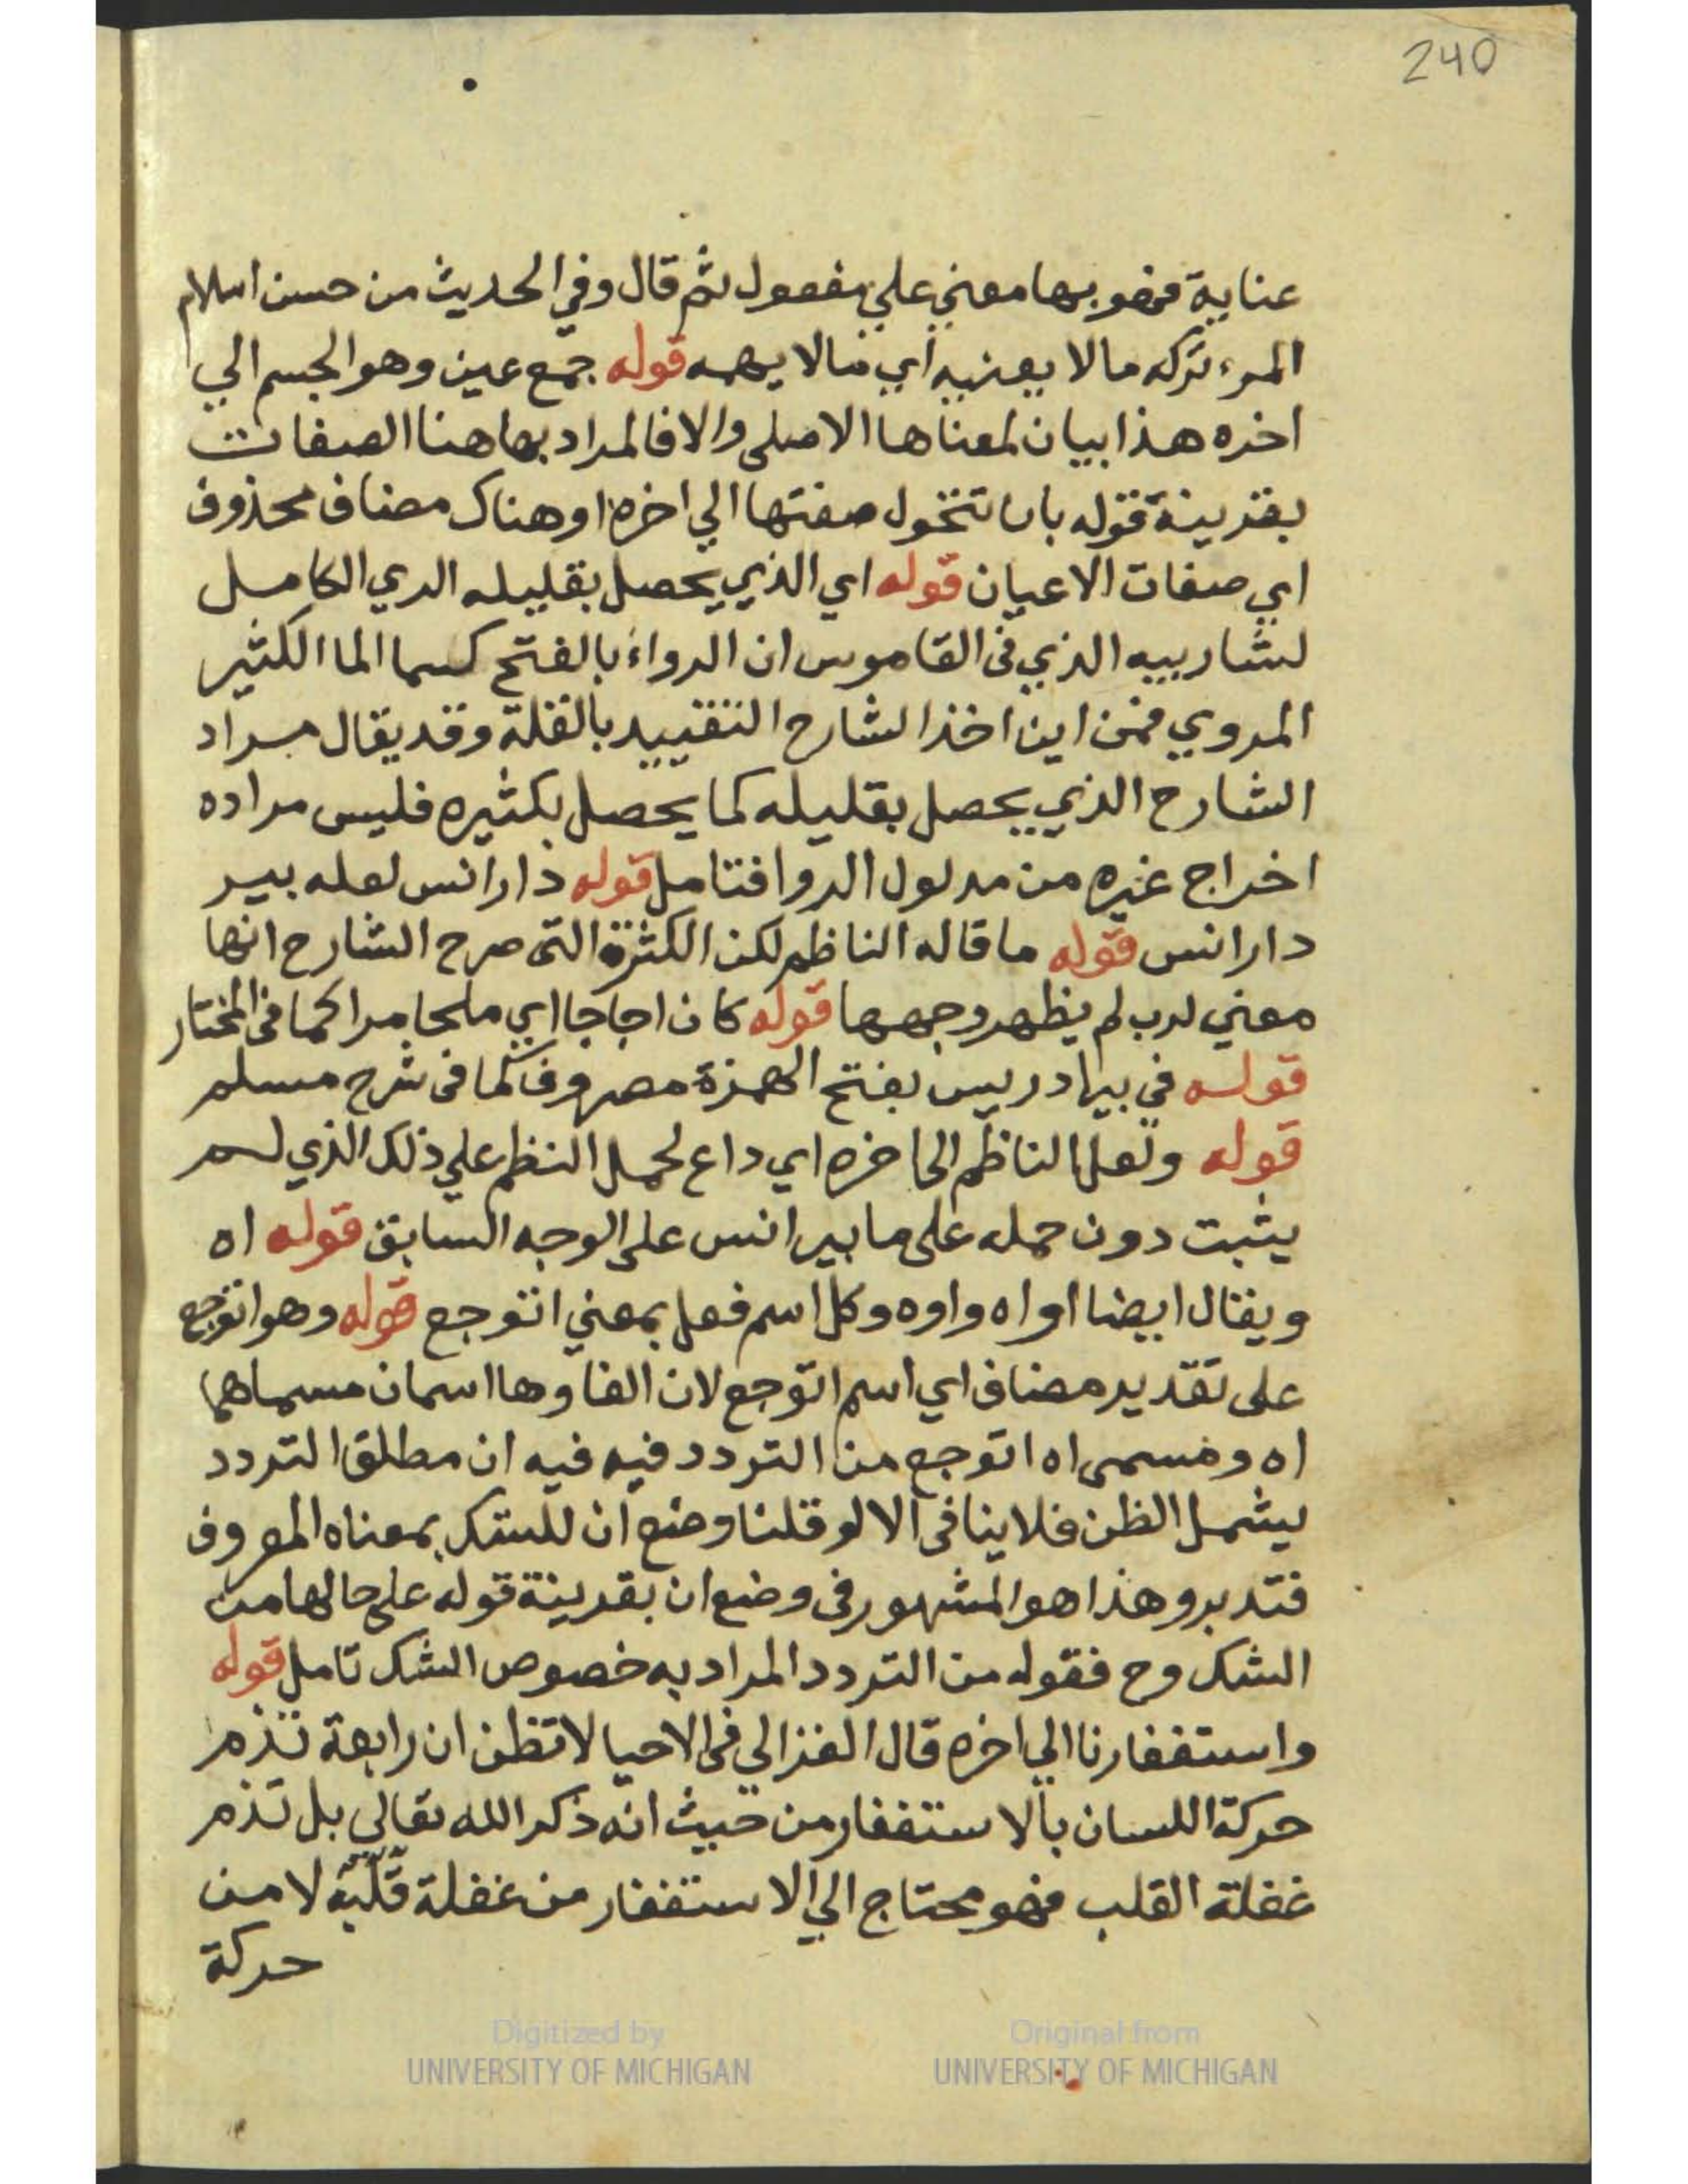 240
عناية فهو بها معني علي مفعول ثم قال وفي الحديث من حسن اسلام
المرء تركه مالا يعنيه اي مالا يهمه قوله جمع عين وهو الجسم الي
اخره هذا بيان لمعناها الاصلي والا فالمراد بها هنا الصفات
بقرينة قوله بان تتحول صفتها الي اخره او هناك مضاف محذوف
اي صفات الاعيان قوله اي الذي يحصل بقليله الري الكامل
لشاربيه الذي في القاموس ان الرواء بالفتح كسما الما الكثير
المروي فمن اين اخذ الشارح التقييد بالقلة وقد يقال مراد
الشارح الذي يحصل بقليله كما يحصل بكثيره فليس مراده
اخراج غيره من مدلول الروا فتامل قوله دار انس لعله بير
دار انس قوله ما قاله الناظم لكن الكثرة التي صرح الشارح انها
معني لرب لم يظهر وجهها قوله كان اجاجا اي ملحا مرا كما في المختار
قوله في بيا دريس بفتح الهمزة مصروف كما في شرح مسلم
قوله ولعل الناظم الي اخره اي داع لحمل النظم علي ذلك الذي لم
يثبت دون حمله علي ما بير انس علي الوجه السابق قوله اه
ويقال ايضا اواه واوه وكل اسم فعل بمعني اتوجع قوله وهو اتوجع
علي تقدير مضاف اي اسم اتوجع لان الفا وها اسمان مسماهما
اه ومسمي اه اتوجع من التردد فيه فيه ان مطلق التردد
يشمل الظن فلا ينافي الا لو قلنا وضع ان للشك بمعناه المعروف
فتدبر وهذا هو المشهور في وضع ان بقرينة قوله علي حالها من
الشك وح فقوله من التردد المراد به خصوص الشك تامل قوله
واستغفارنا الي اخره قال الغزالي في الاحيا لا تظن ان رابعة تذم
حركة اللسان بالاستغفار من حيث انه ذكر الله تعالي بل تذم
غفلة القلب فهو محتاج الي الاستغفار من غفلة قلبه لا من
حركة
Digitized by
UNIVERSITY OF MICHIGAN
Original from
UNIVERSITY OF MICHIGAN